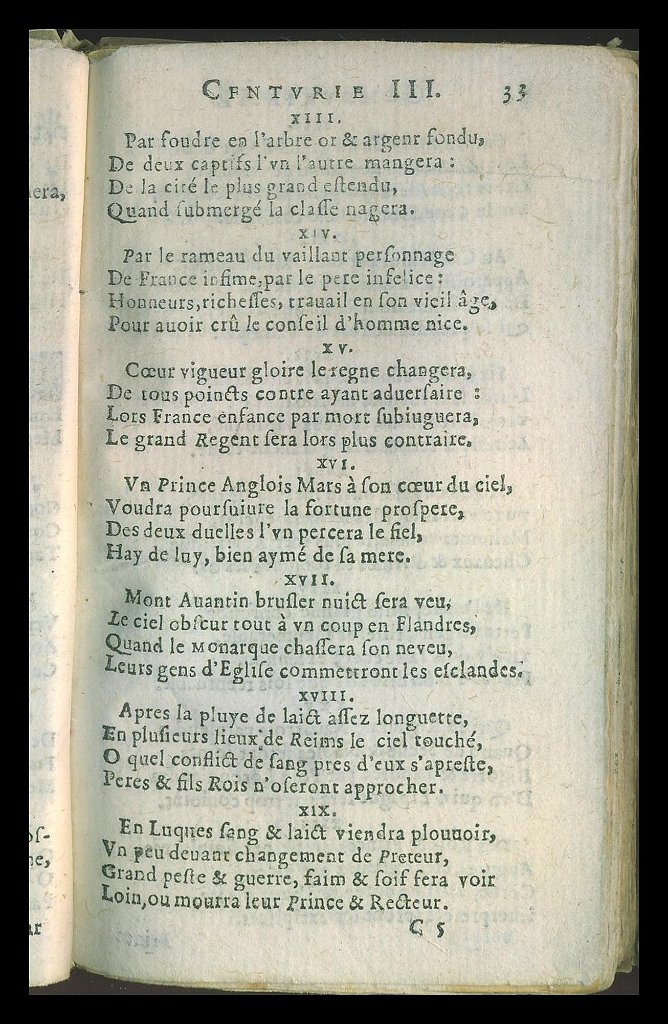 CENTVRIE III. 33
XIII.
Par foudre en l'arbre or & argenr fondu,
De deux captifs l'vn l'autre mangera :
De la cité le plus grand eſtendu,
Quand ſubmergé la claſſe nagera.
XIV.
Par le rameau du vaillant perſonnage
De France infime, par le pere infelice :
Honneurs, richeſſes, trauail en ſon vieil âge,
Pour auoir crû le conſeil d'homme nice.
XV.
Cœur vigueur gloire le regne changera,
De tous poincts contre ayant aduerſaire :
Lors France enfance par mort ſubiuguera,
Le grand Regent ſera lors plus contraire.
XVI.
Vn Prince Anglois Mars à ſon cœur du ciel,
Voudra pourſuiure la fortune proſpere,
Des deux duelles l'vn percera le fiel,
Hay de luy, bien aymé de ſa mere.
XVII.
Mont Auantin bruſler nuict ſera veu,
Le ciel obſcur tout à vn coup en Flandres,
Quand le Monarque chaſſera ſon neveu,
Leurs gens d'Egliſe commettront les eſclandes.
XVIII.
Apres la pluye de laict aſſez longuette,
En pluſieurs lieux de Reims le ciel touché,
O quel conflict de ſang pres d'eux s'apreſte,
Peres & fils Rois n'oſeront approcher.
XIX.
En Luques ſang & laict viendra plouuoir,
Vn peu deuant changement de Preteur,
Grand peſte & guerre, faim & ſoif fera voir
Loin, ou mourra leur Prince & Recteur.
C 5